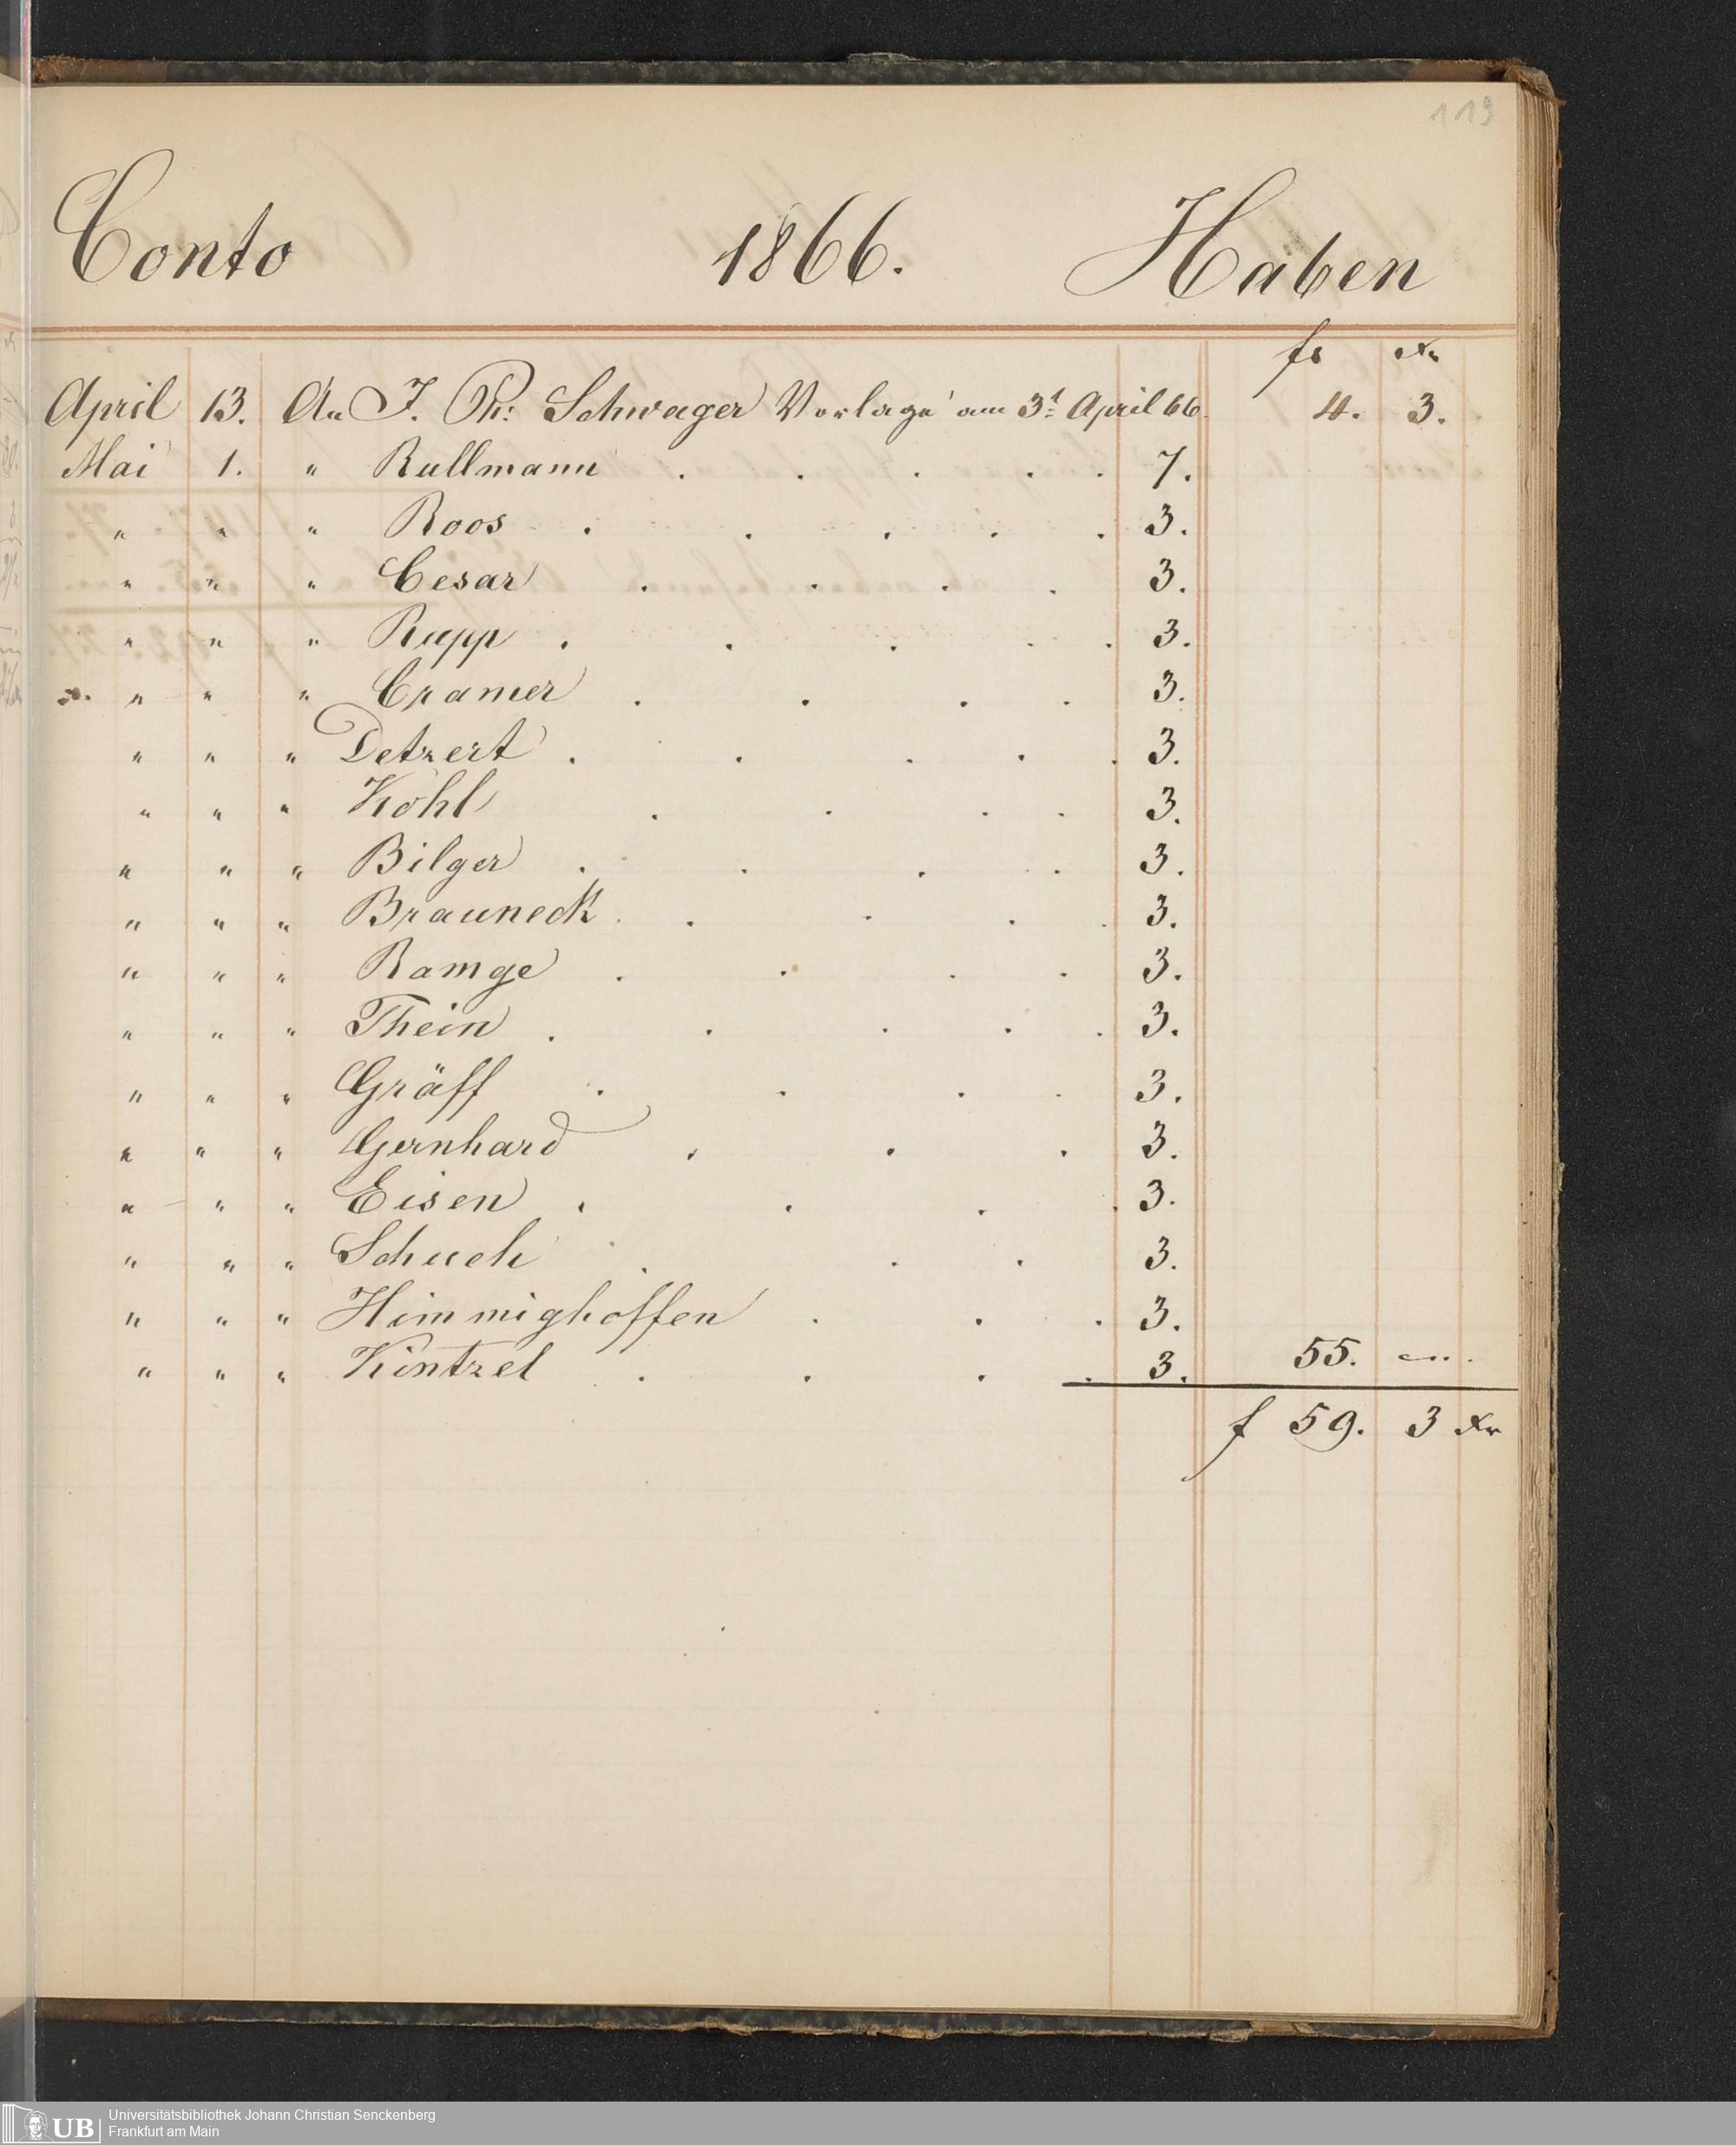 119
Conto 1866. Haben
fs xr
April 13. An J. Ph: Schwager Vorlage am 3t April 66. 4. 3.
Mai 1. " Rullmann . . . . . 7.
" " " Roos . . . . . 3.
" " " Cesar . . . . 3.
" " " Rupp . . . . . 3.
" " " Cramer . . . . 3.
" " " Detzert . . . . . 3.
" " " Kohl . . . . 3.
" " " Bilger . . . . 3.
" " " Brauneck . . . . 3.
" " " Ramge . . . . 3.
" " " Thein . . . . . 3.
" " " Gräff . . . . 3.
" " " Gernhard . . . 3.
" " " Eisen . . . . 3.
" " " Schuch . . . 3.
" " " Himmighoffen . . . 3.
" " " Kintzel . . . . 3. 55. —..
f 59. 3 xr
UB Universitätsbibliothek Johann Christian Senckenberg
Frankfurt am Main